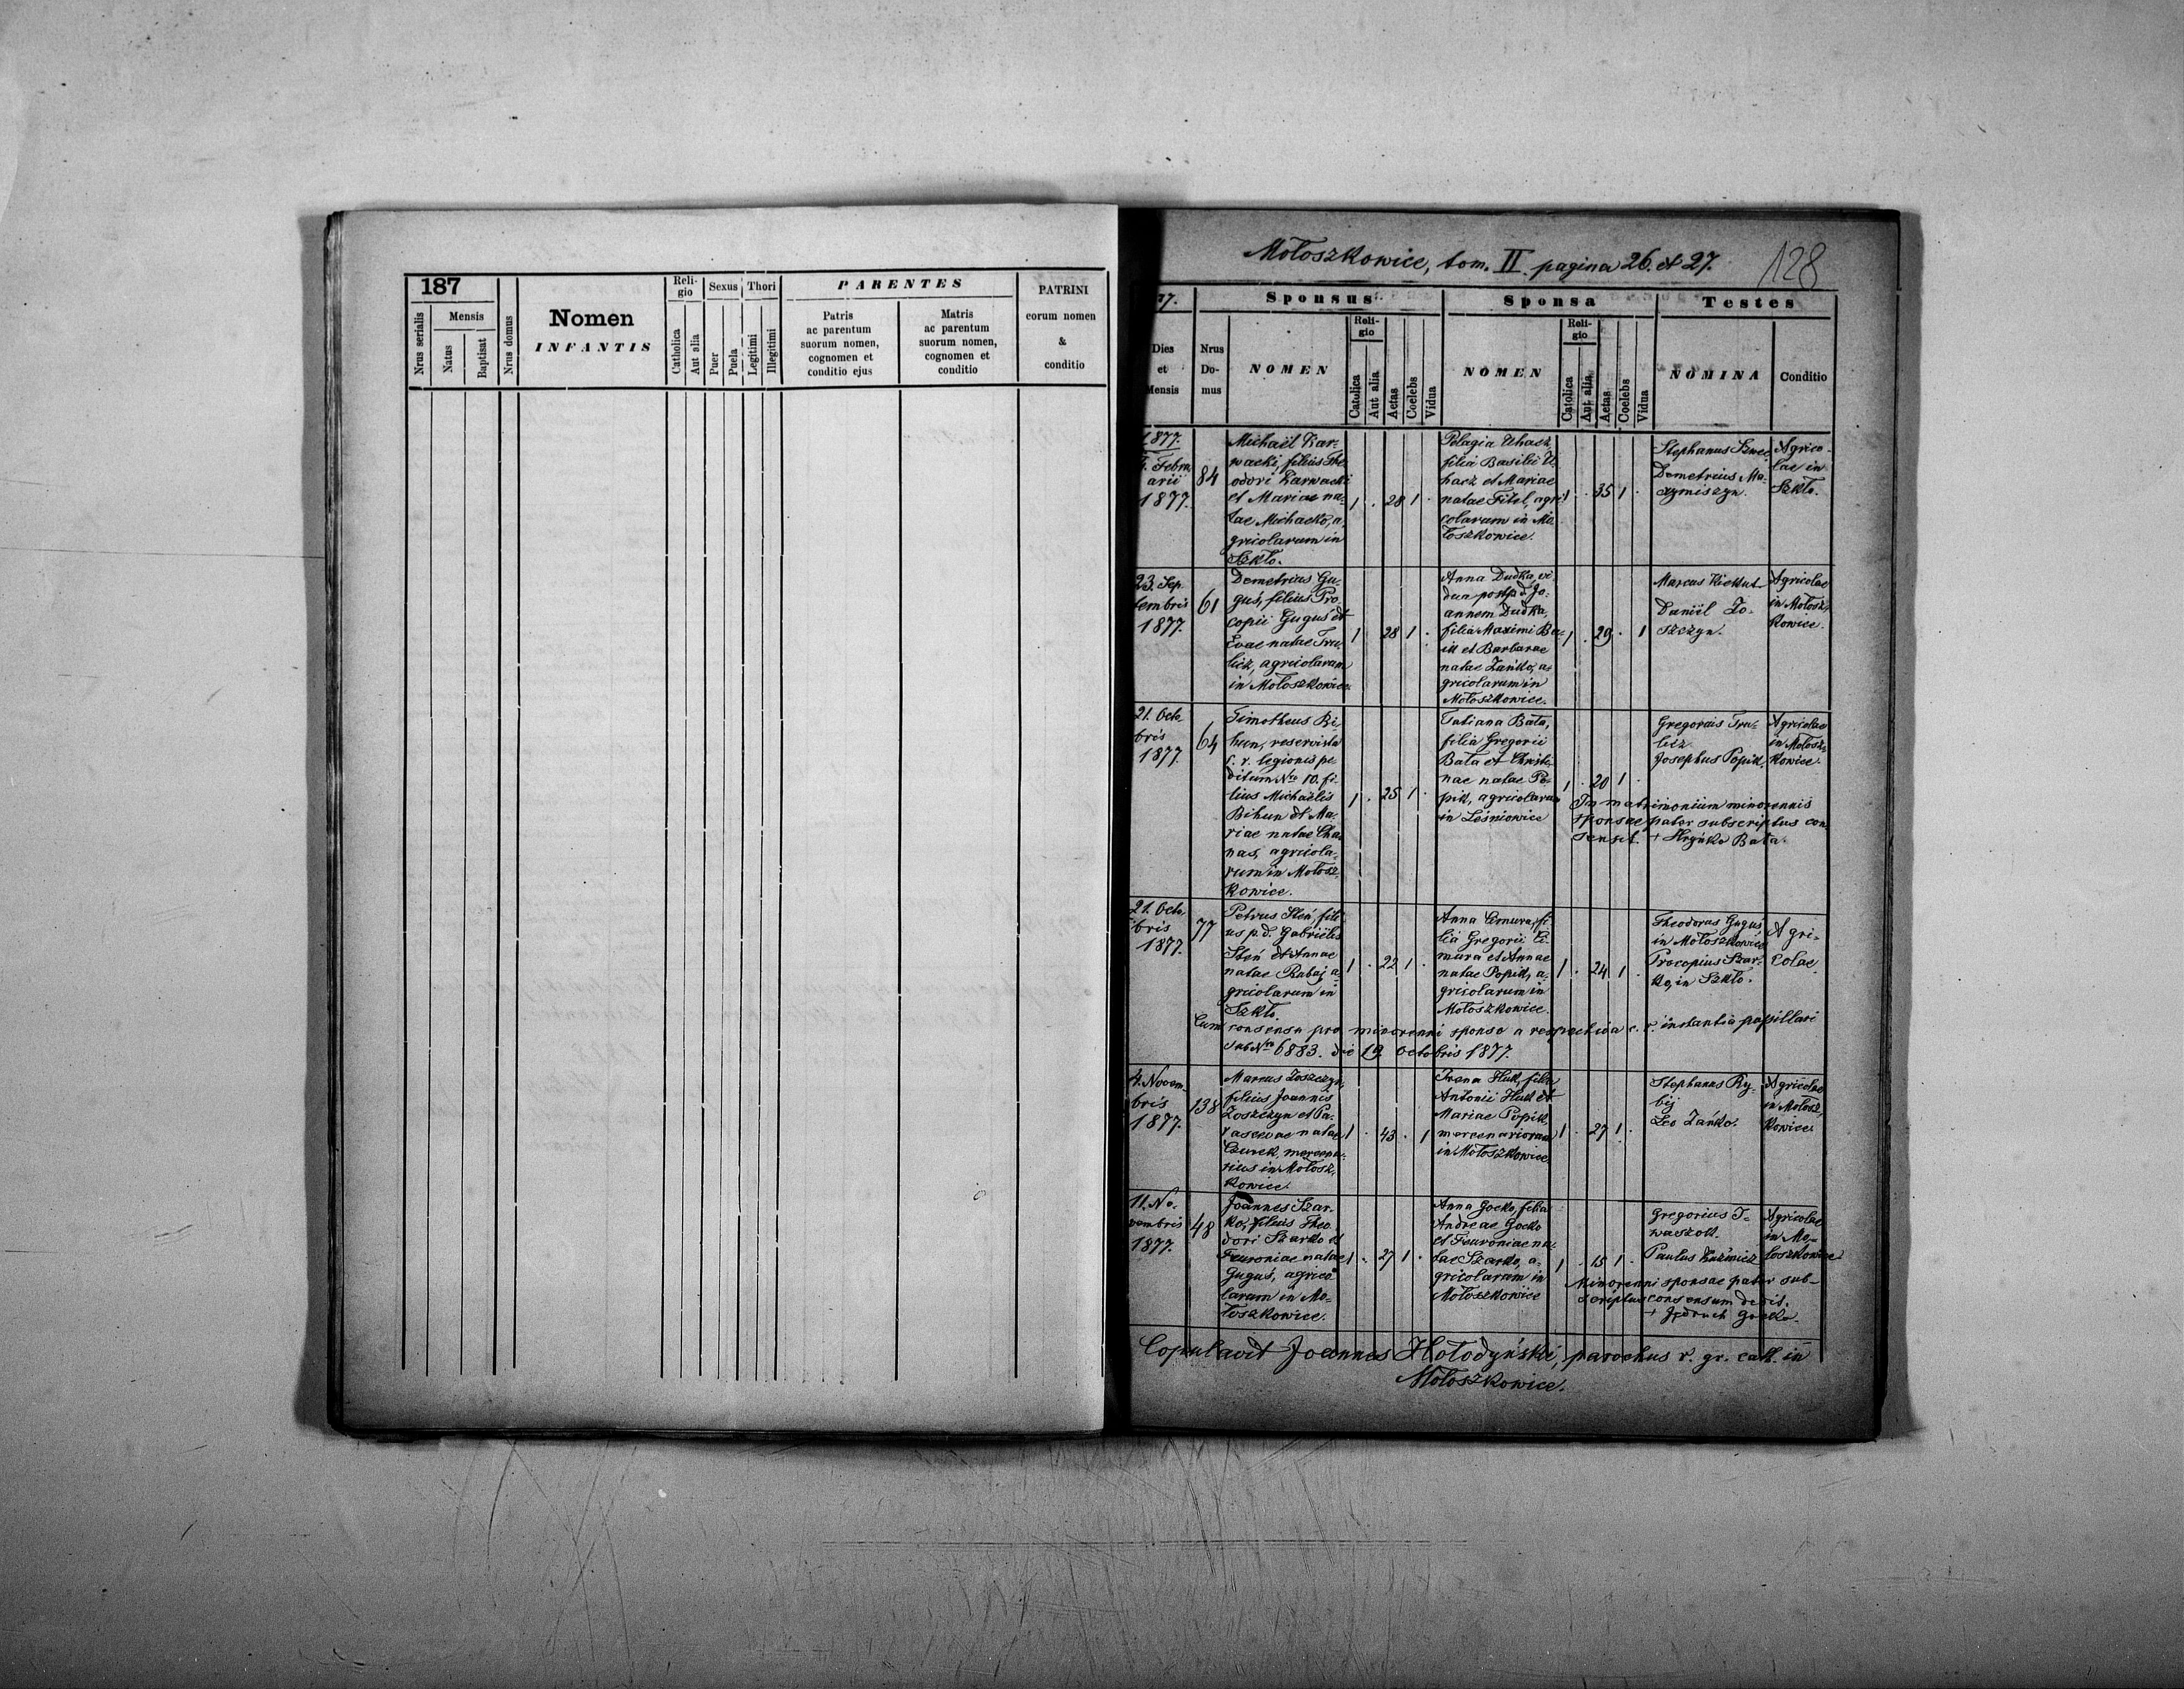 187
Nrus serialis
Mensis
Natus
Baptisat
Nrus domus
Nomen
INFANTIS
Reli-
gio
Catholica
Aut alia
Sexus
Puer
Puela
Thori
Legitimi
Illegitimi
PARENTES
Patris
ac parentum
suorum nomen,
cognomen et
conditio ejus
Matris
ac parentum
suorum nomen,
cognomen et
conditio
PATRINI
eorum nomen
&
conditio
Mołoszkowice, tom. II. pagina 26. et 27.
128
77.
Dies
et
Mensis
Nrus
Do-
mus
Sponsus
NOMEN
Reli-
gio
Catolica
Aut alia
Aetas
Coelebs
Vidua
Sponsa
NOMEN
Reli-
gio
Catolica
Aut alia
Aetas
Coelebs
Vidua
Testes
NOMINA
Conditio
1877.
Febru
arii
1877.
84
Michaël Kar-
wacki, filius The
odori Karwacki
et Mariae na-
tae Michaćko, a,
gricolarum in
Szkło.
1 . 28 1 .
Pelagia Uhacz,
filia Basilii U,
hacz et Mariae
natae Fitel, agri
colarum in Mo
łoszkowice.
1 . 35 1 .
Stephanus Szwec
Demetrius Ma-
xymiszyn.
Agrico-
lae in
Szkło.
23. Sep
tembris
1877.
61
Demetrius Gu-
guś, filius Pro
copii Guguś et
Evae natae Tru-
licz, agricolarum
in Mołoszkowice.
1 . 28 1 .
Anna Dudka, vi
dua post p. d. Jo-
annem Dudka,
filia Maximi
et Barbarae
natae Zańko, a-
gricolarum in
Mołoszkowice.
1 . 29 . 1
Marcus
Daniil Zo-
szczyn.
Agricolae
in Mołosz,
kowice.
21. Octo
bris
1877.
64
Timotheus Bi,
hun, reservista
c. r. legionis pe
ditum Nro 10. fi-
lius Michaëlis
Bihun et Ma-
riae natae Cha
nas, agricola-
rum in Mołosz-
kowice.
1 . 25 1 .
Tatiana Bata,
filia Gregorii
Bata et Christi-
nae natae Po-
pik, agricolarum
in Leśniowice
1 . 20 1 .
Gregorius Tru-
licz
Josephus Popik.
Agricolae
in Mołosz-
kowice.
In matrimonium minorennis
sponsae pater subscriptus con
sensit. + Hryńko Bata.
21. Octo
bris
1877.
77
Petrus Steń, fili
us p. d. Gabriëlis
Steń et Annae
natae Babaj a
gricolarum in
Szkło.
1 . 22 1 .
Anna Cimura, fi
lia Gregorii Ci-
mura et Annae
natae Popik, a-
gricolarum in
Mołoszkowice.
1 . 24 1 .
Theodorus Guguś
in Mołoszkowice
Procopius Szar-
ko, in Szkło.
Agri-
colae.
Cum consensu pro minorenni sponso a respectiva c. r. instantia pupillari
sub Nro 6883. die 19 octobris 1877.
4. Novem-
bris
1877.
138
Marcus Zoszczyn,
filius Joannis
Zoszczyn et Pa-
rascevae natae
Czurek, mercena-
rius in Mołosz,
kowice.
1 . 43 . 1
Irena Huk, filia
Antonii Huk et
Mariae Popik,
mercenariorum
in Mołoszkowice.
1 . 27 1 .
Stephanus Ry-
bij
Leo Zańko.
Agricolae
in Mołosz,
kowice.
11. No-
vembris
1877.
48
Joannes Szar-
ko, filius Theo
dori Szarko et
Feuroniae natae
Guguś, agrico
larum in Mo-
łoszkowice.
1 . 27 1 .
Anna Goćko, filia
Andreae Goćko
et Feuroniae na-
tae Szarko, a-
gricolarum in
Mołoszkowice
1 . 15 1 .
Gregorius I-
waszok.
Paulus Kuźmicz
Agricolae
in Mo-
łoszkowice.
Minorenni sponsae pater sub-
scriptus consensum dedit.
+ Jędruch Goćko.
Copulavit Joannes Hołodyński, parochus r. gr. cath. in
Mołoszkowice.